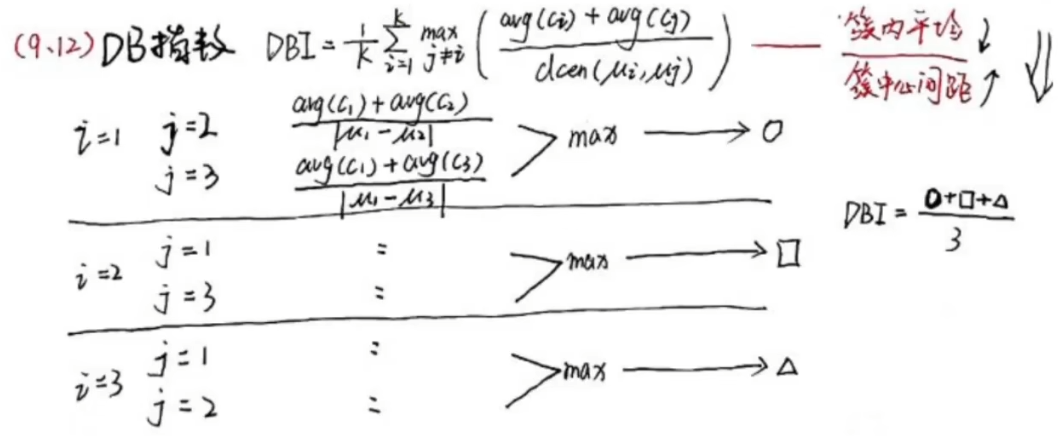 (9.12) DB指数 DBI = \frac{1}{k} \sum_{i=1}^{k} \max_{j≠i} ( \frac{avg(Ci) + avg(Cj)}{dcen(μi, μj)} ) — \frac{簇内平均↓}{簇中心间距↑} ⇓
i=1 j=2 \frac{avg(C₁) + avg(C₂)}{|μ₁ - μ₂|}
max → ○
j=3 \frac{avg(C₁) + avg(C₃)}{|μ₁ - μ₃|}
DBI = \frac{○+□+△}{3}
i=2 j=1 :
max → □
j=3 :
i=3 j=1 :
max → △
j=2 :